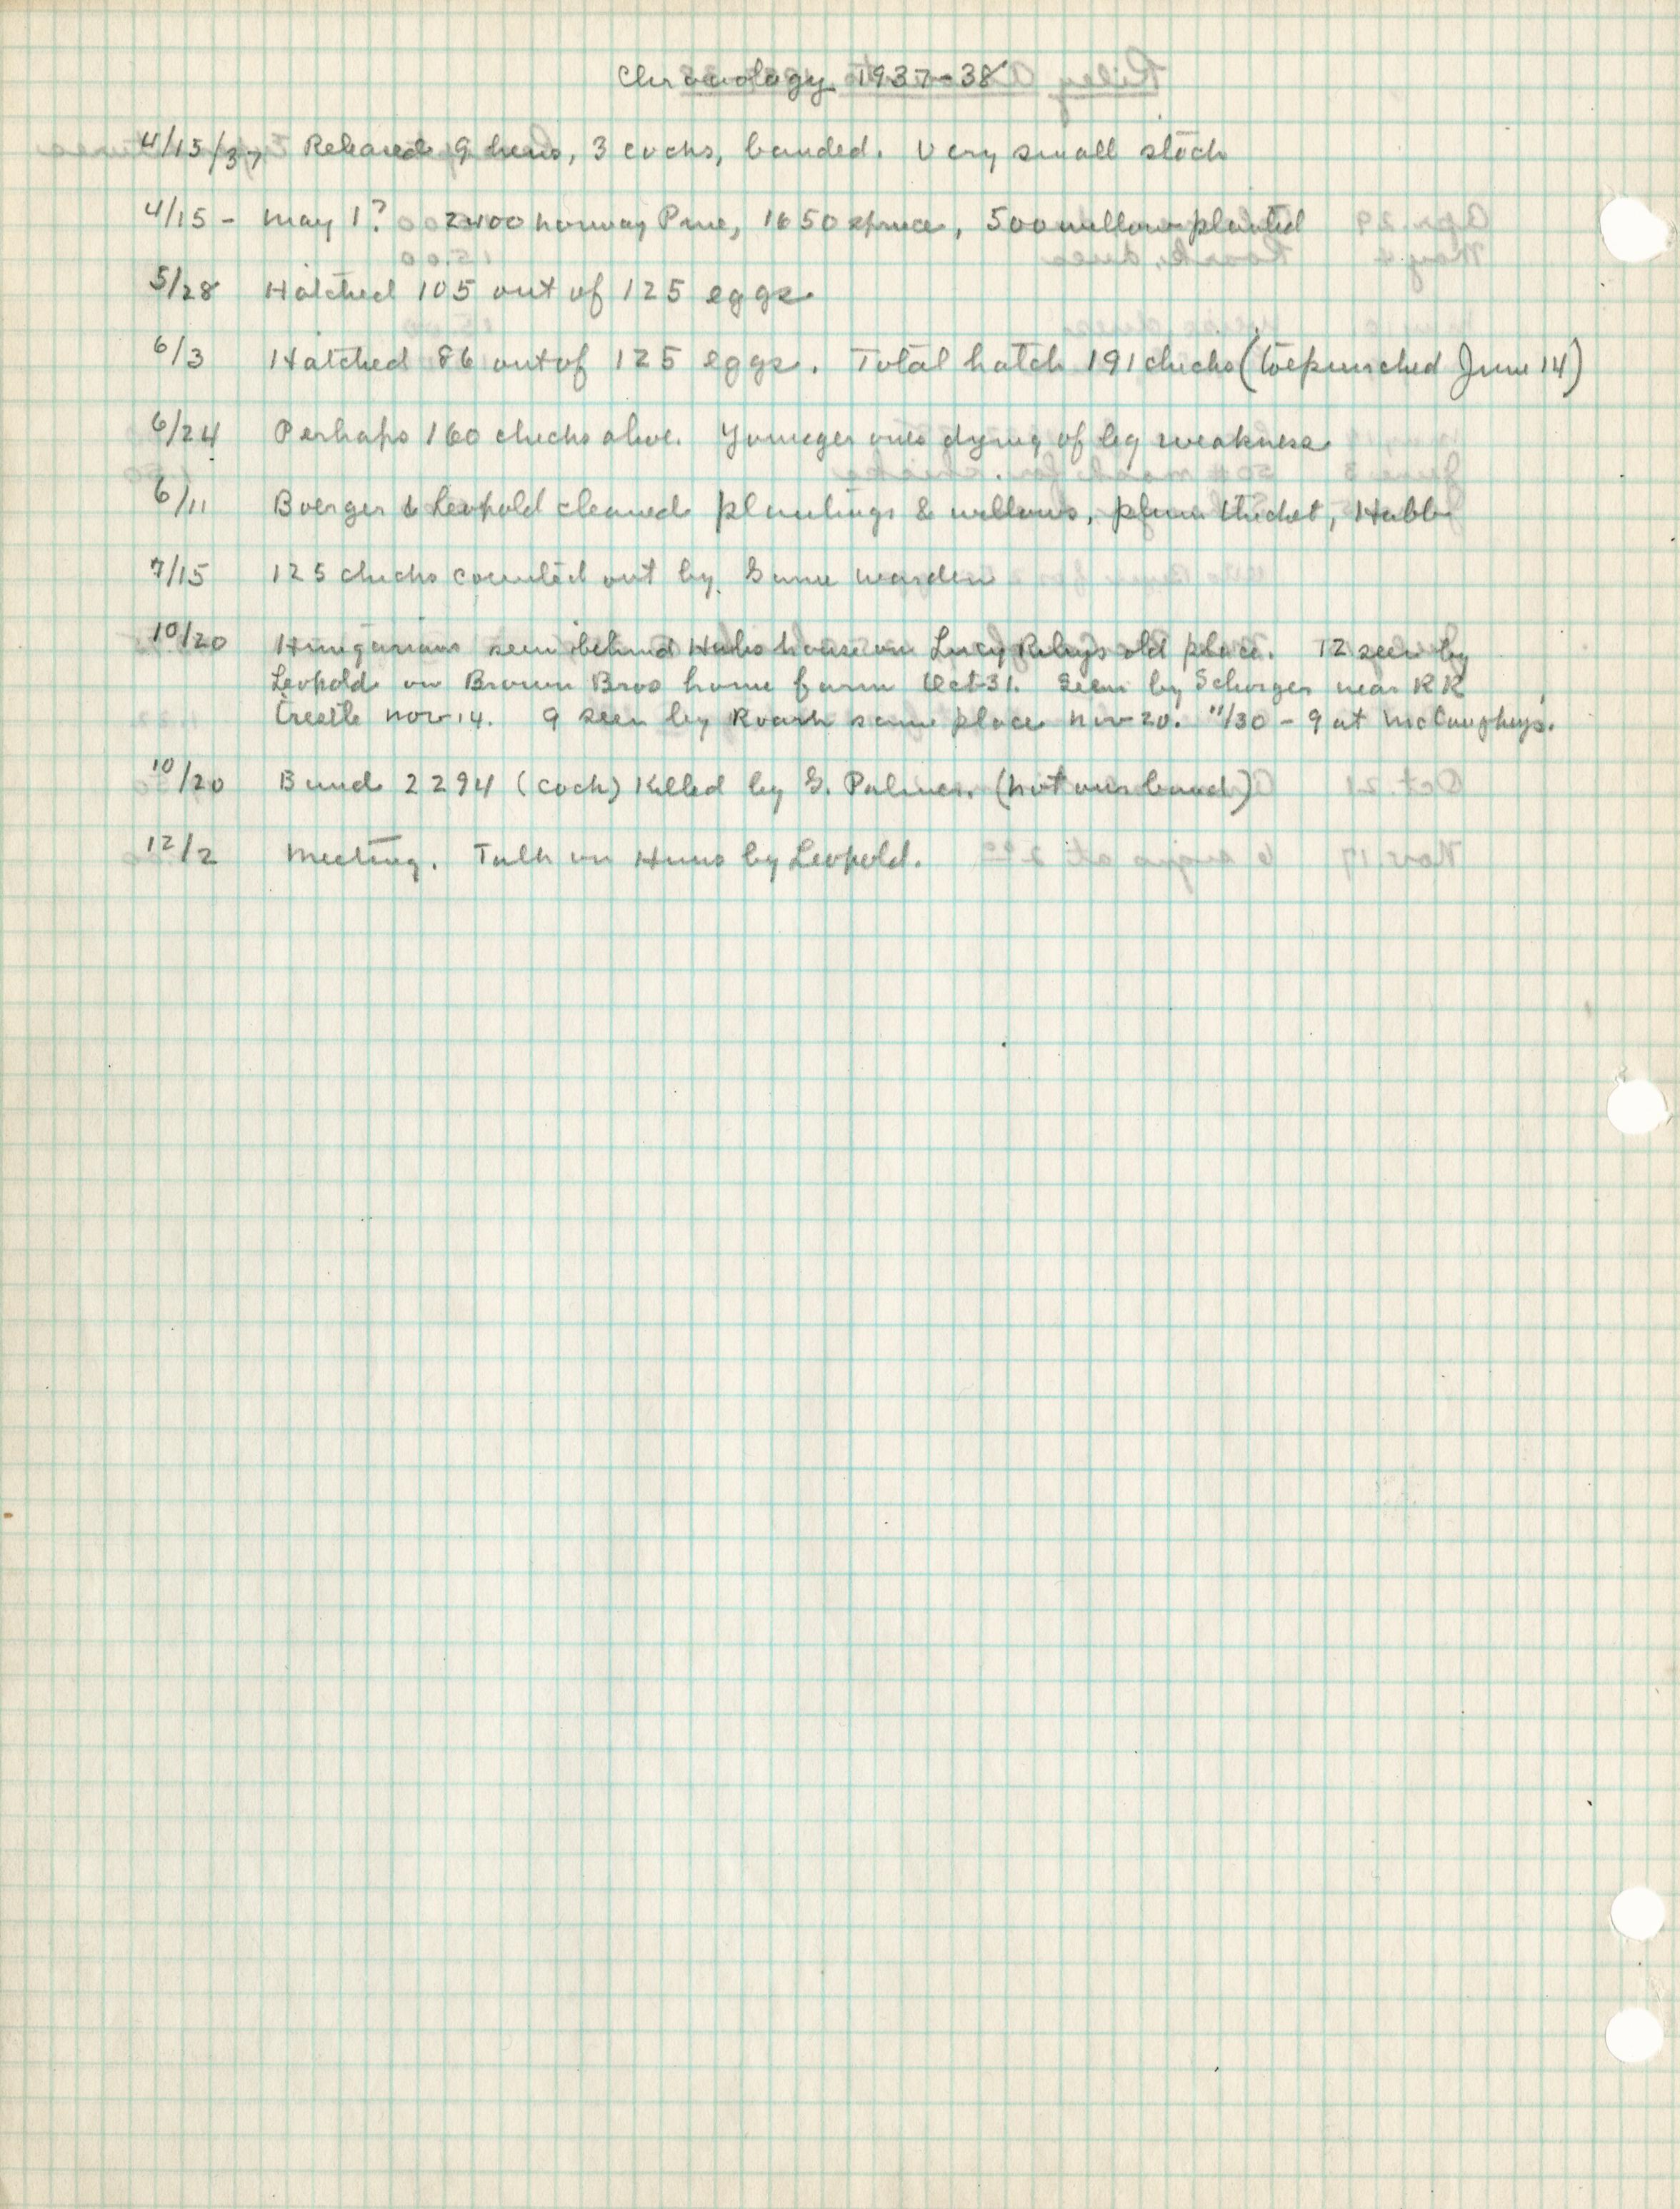 Chronology 1937-38
4/15/37 Released 9 hens, 3 cocks, banded. Very small stock
4/15 - May 1? 2400 Norway Pine, 1650 spruce, 500 willow planted
5/28 Hatched 105 out of 125 eggs
6/3 Hatched 86 out of 125 eggs. Total hatch 191 chicks (toepunched June 14)
6/24 Perhaps 160 chicks alive. Younger ones dying of leg weakness
6/11 Boerger & Leopold cleaned plantings & willows, plum thicket,
7/15 125 chicks counted out by Game warden
10/20 Hungarians seen behind house on Lucy Rileys old place. 12 seen by
Leopold on Brown Bros home farm Oct 31. Seen by Schorger near RR
trestle Nov 14. 9 seen by Roark same place Nov 20. 11/30 - 9 at McCaugheys.
10/20 Band 2294 (cock) killed by G. Palmer. (not our band)
12/2 Meeting. Talk on Huns by Leopold.